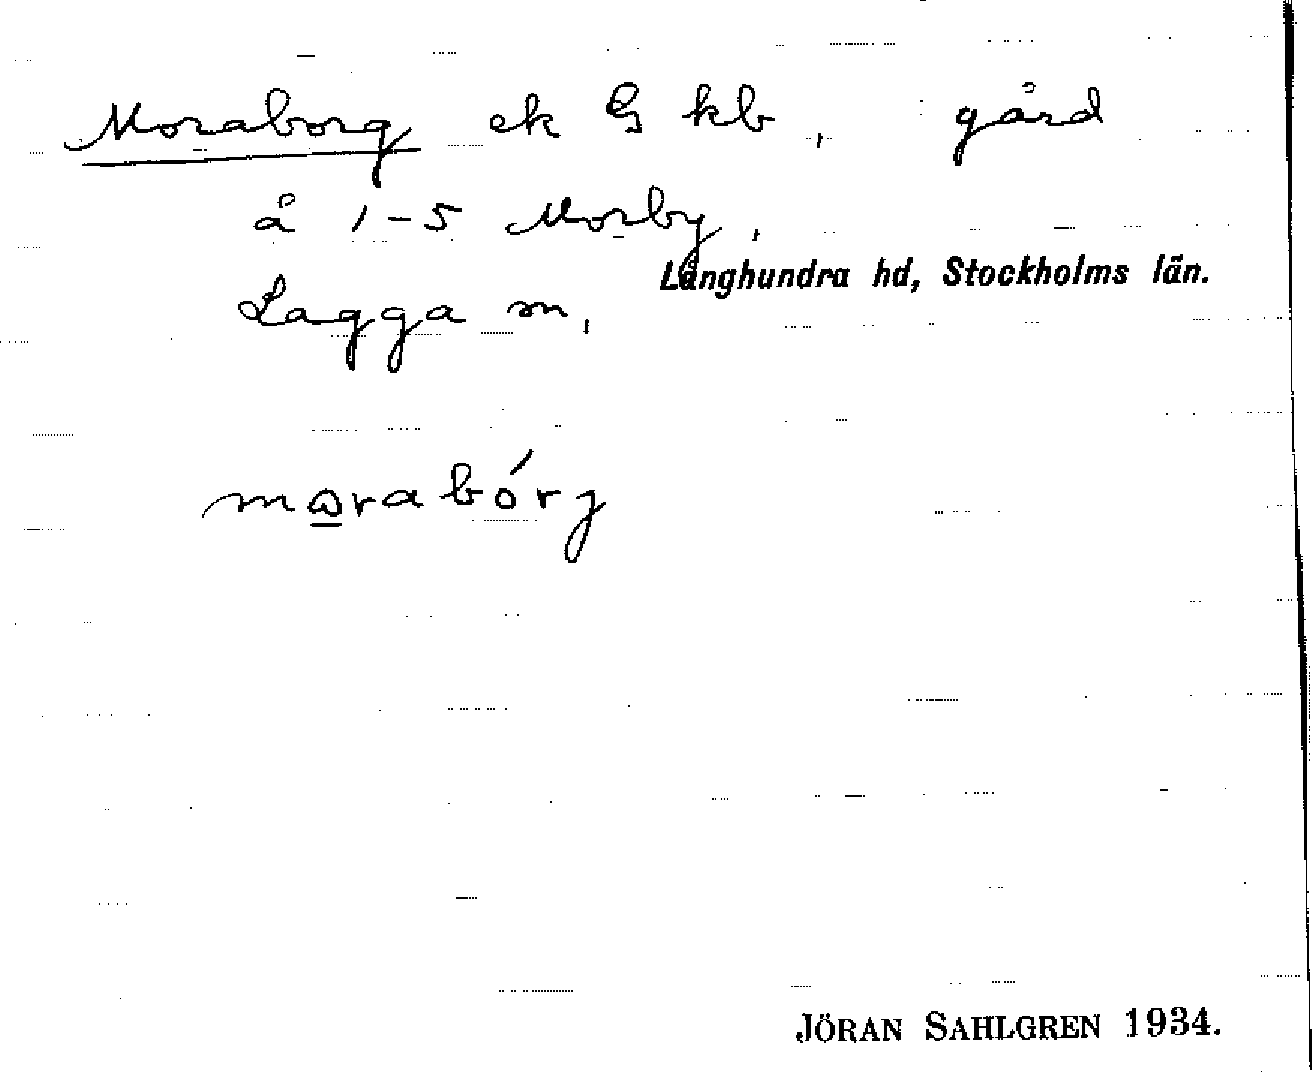 Moraborg ek G kb, gård
å 1-5 Morby,
Långhundra hd, Stockholms län.
Lagga sn,
mωrabórj
JÖRAN SAHLGREN 1934.